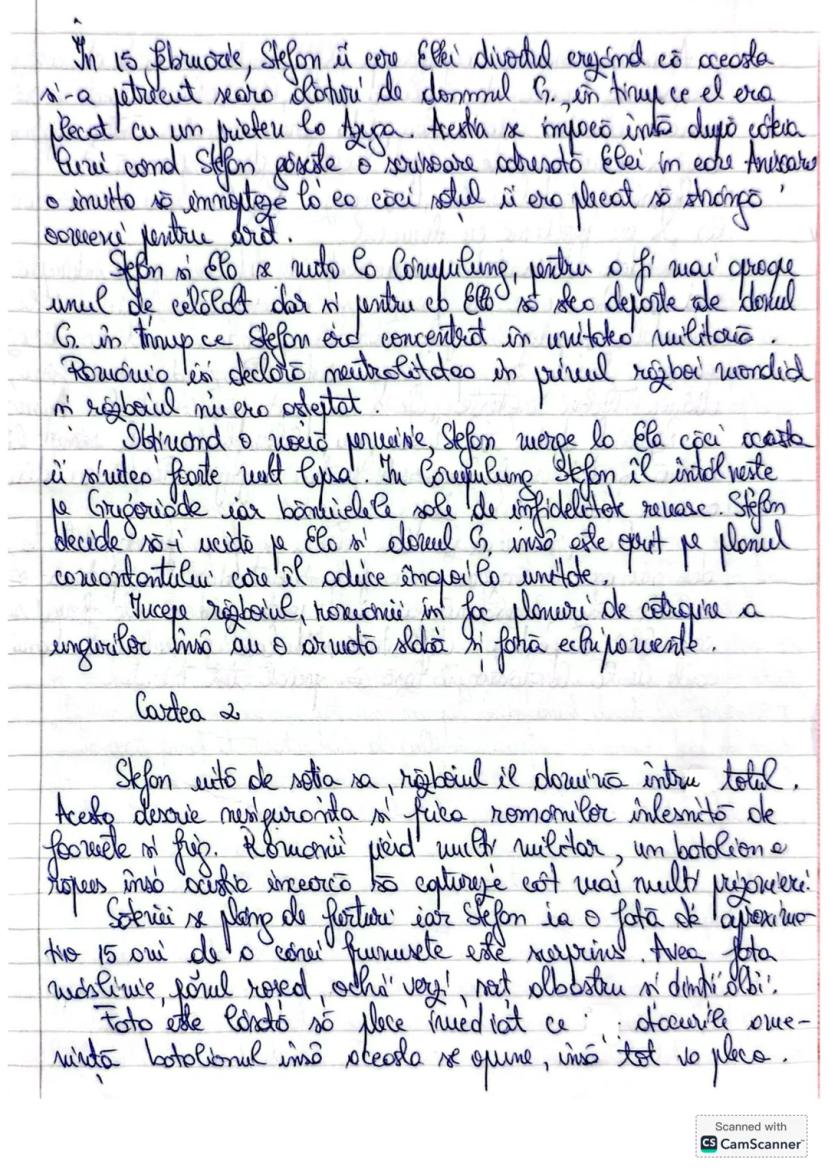 În 15 februarie, Stefan îi cere Elei divortul crezând că aceasta
si-a petrecut seara alaturi de domnul G., în timp ce el era
plecat cu un prieten la Azuga. Acestia se împacă însă după câteva
luni cand Stefan găseste o scrisoare adresată Elei în care Anisoara
o invita să înnopteze la ea căci sotul îi era plecat să strângă
oameni pentru arat.
Stefan si Ela se muta la Câmpulung, pentru a fi mai aproape
unul de celălalt dar si pentru ca Ela să stea departe de domnul
G. in timp ce Stefan era concentrat în unitatea militară.
România isi declară neutralitatea in primul război mondial
si războiul nu era asteptat.
Obtinand o nouă permisie, Stefan merge la Ela căci aceasta
ii simtea foarte mult lipsa. In Câmpulung Stefan îl întâlneste
pe Grigoriade iar bănuielele sale de infidelitate renasc. Stefan
decide să-i ucidă pe Ela si domnul G, însă este oprit pe planul
comandantului care îl aduce înapoi la unitate
Incepe războiul, romanii isi fac planuri de cotropire a
ungurilor însă au o armată slabă si fără echipamente.
Cartea 2
Stefan uită de sotia sa, războiul il domină întru totul.
Acesta descrie nesiguranta si frica romanilor inlesnită de
foamete si frig. Romanii pierd multi militar, un batalion e
ropus însă acestia încearcă să captureze cât mai multi prizonieri.
Sătenii se plang de furturi iar Stefan ia o fată de aproxima-
tiv 15 ani de a cărei frumusete este surprins. Avea fata
măslinie, părul roscat, ochii verzi, sort albastru si dinții albi.
Fata este lăsată să plece imediat ce atacurile ame-
nintă batalionul insă aceasta se opune, însă tot va pleca.
Scanned with
CS CamScanner